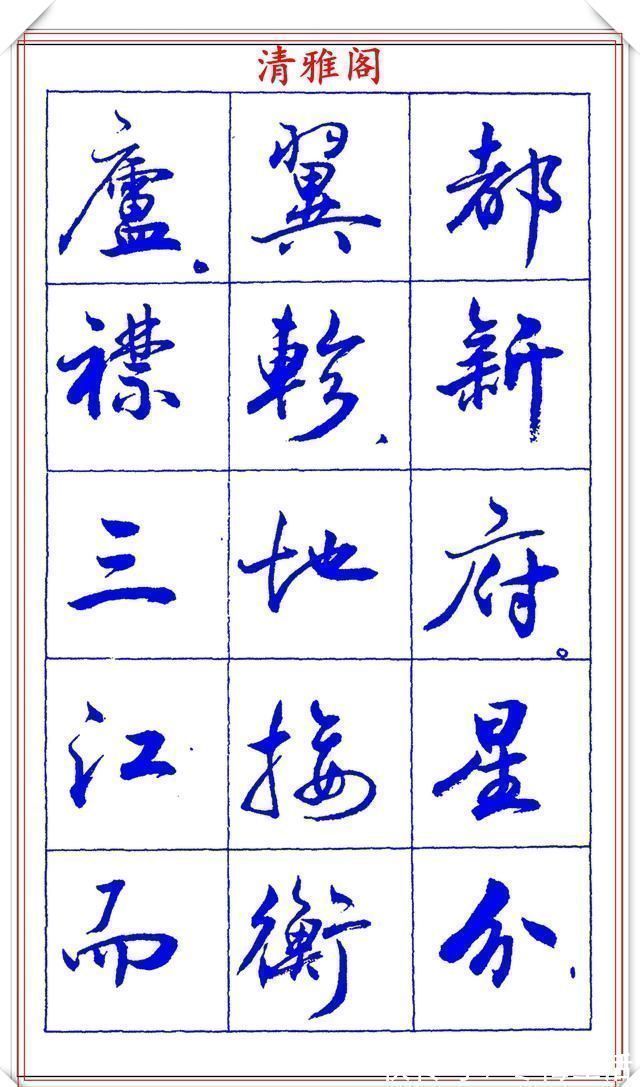 清雅阁
都新府。星分
翼軫、地接衡
廬。襟三江而